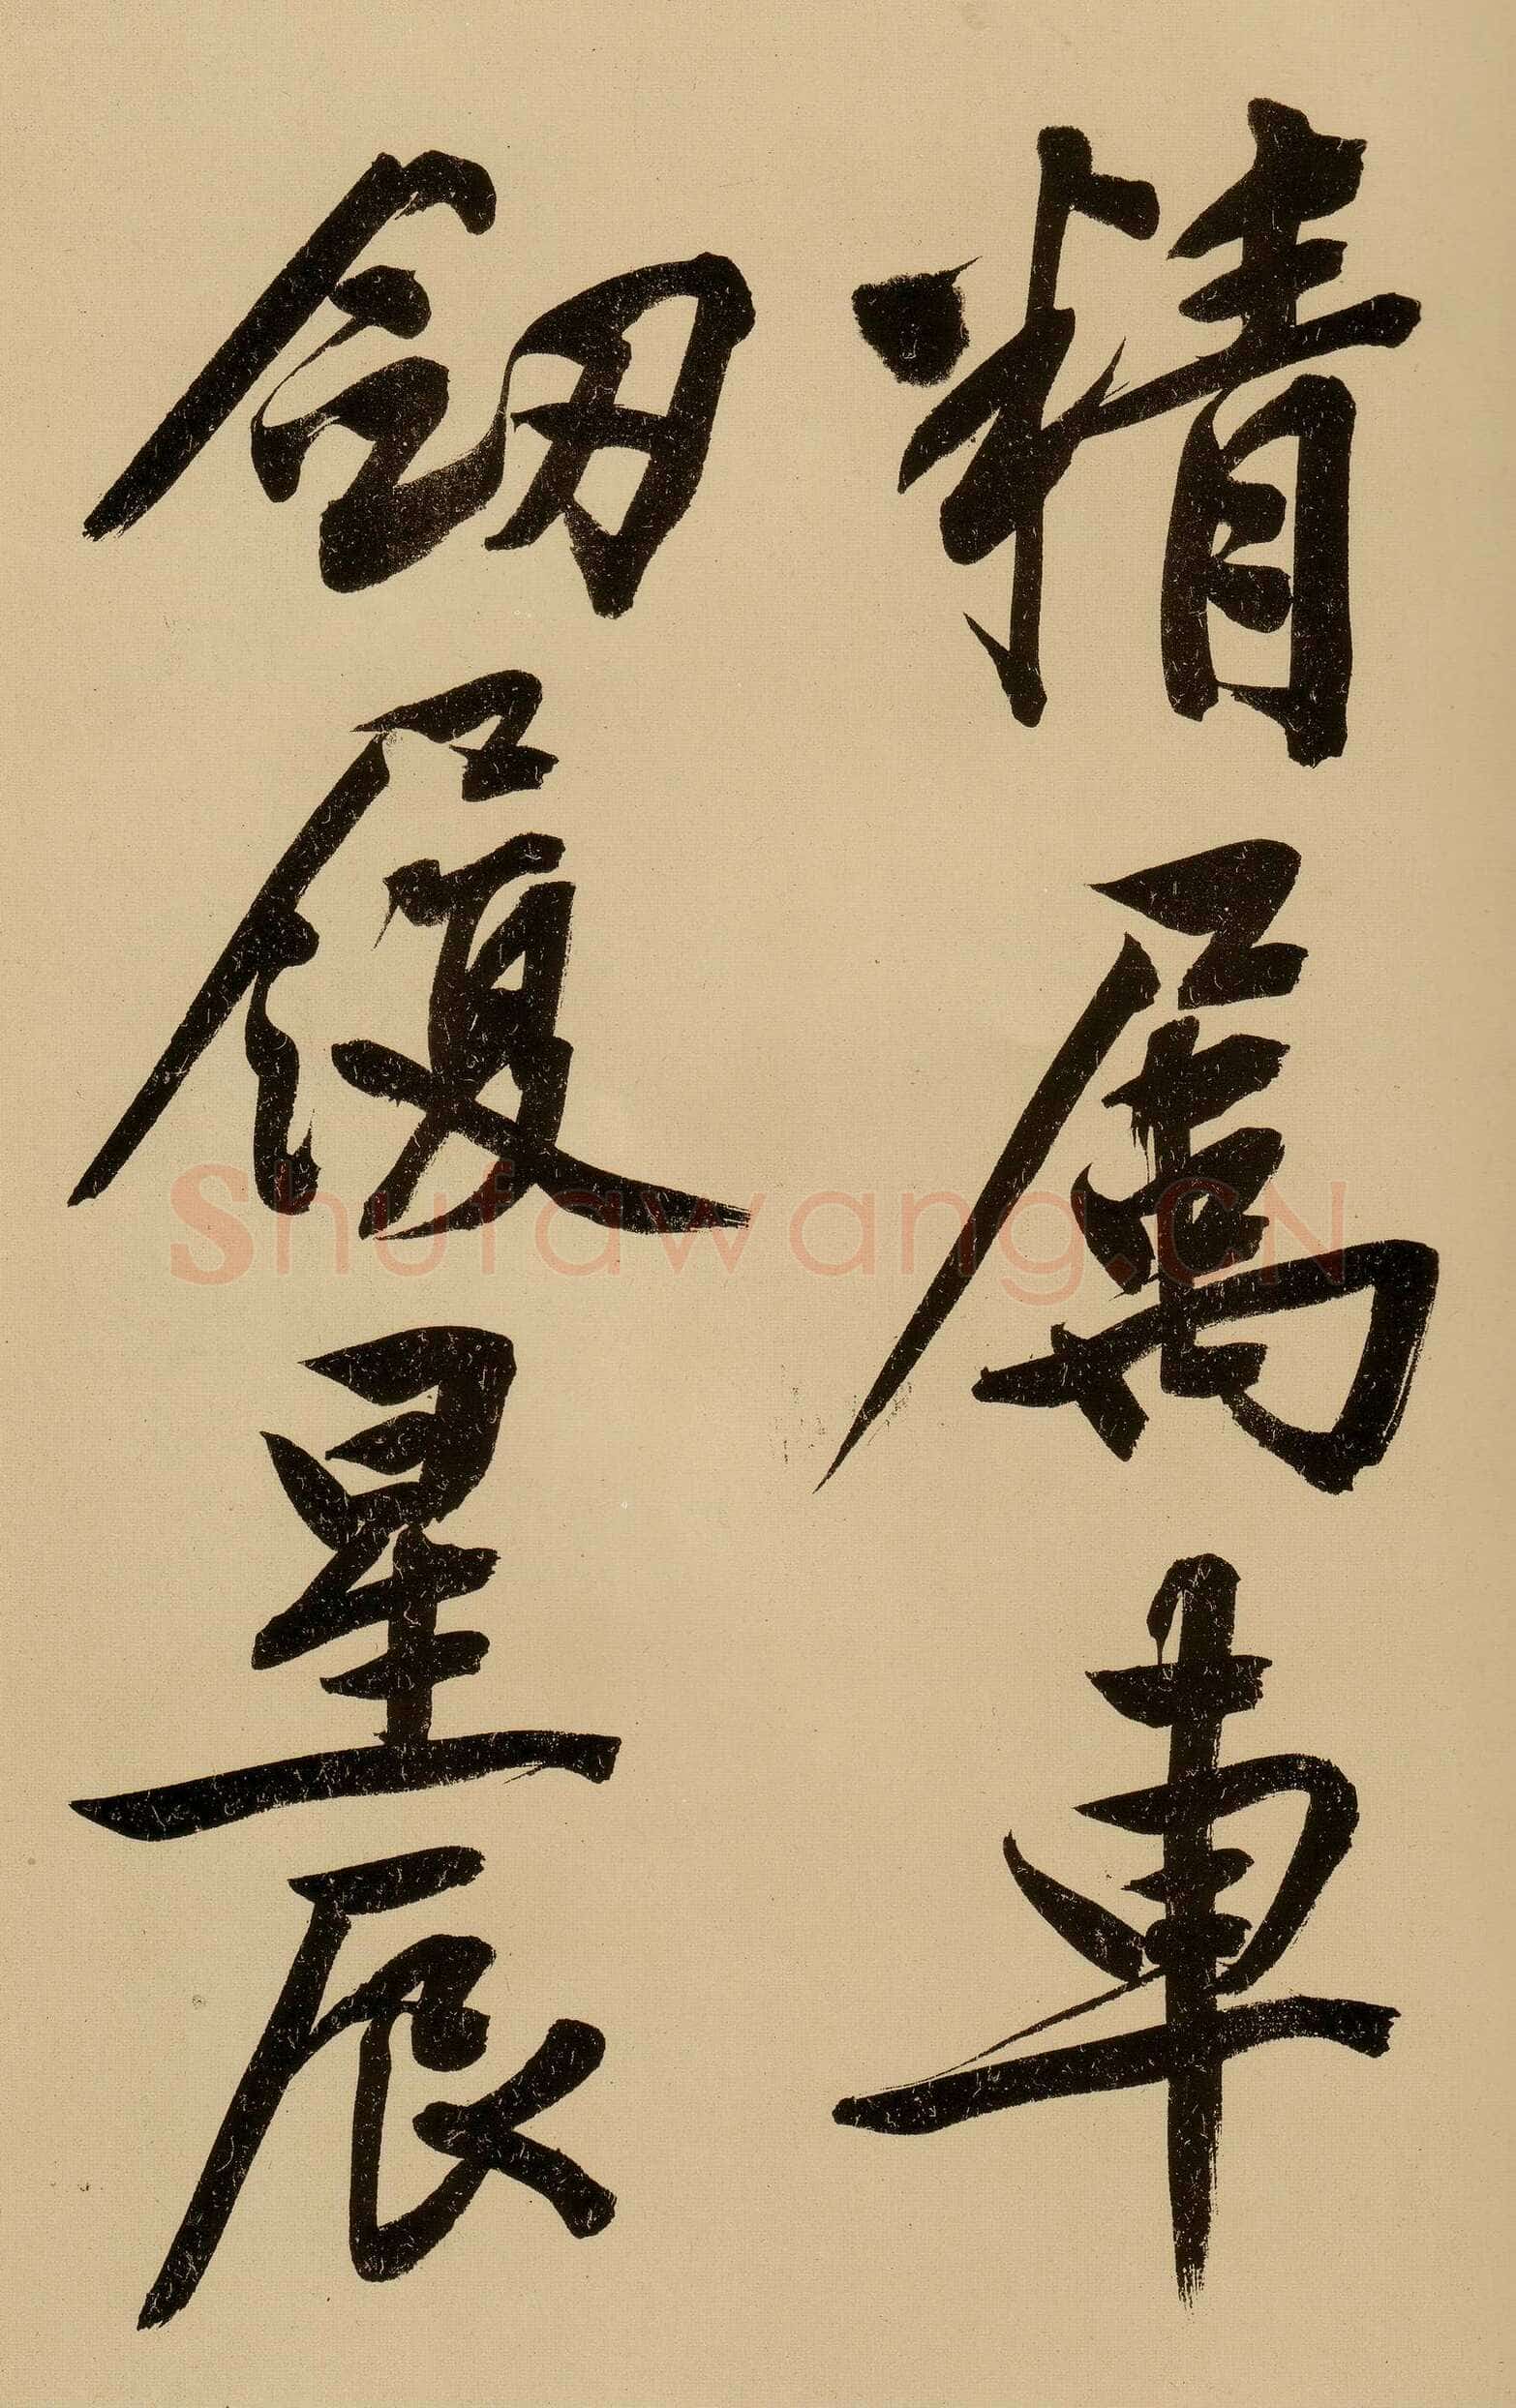 精属車
劒履星辰
Shufawang.CN